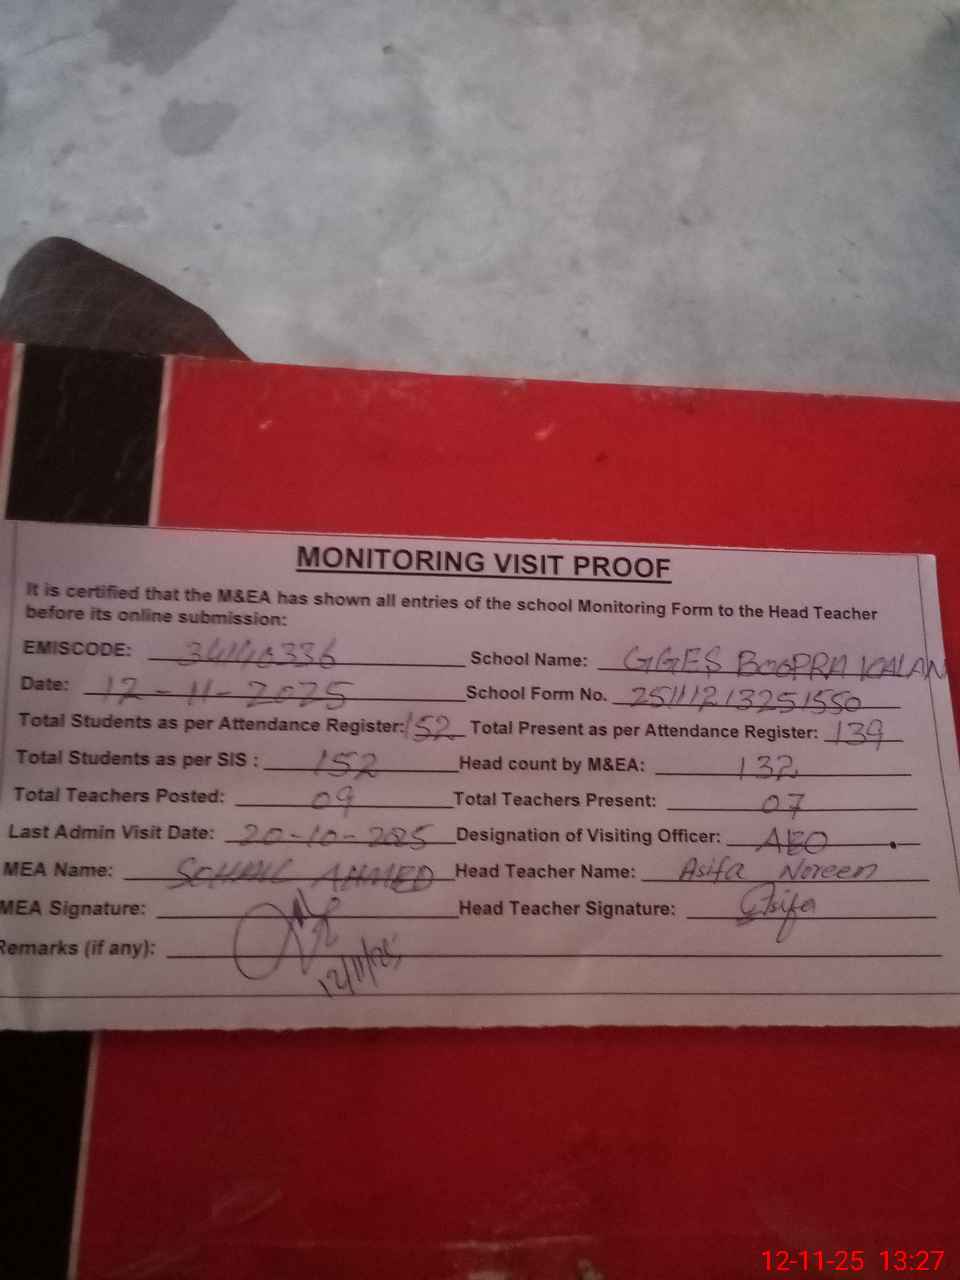 MONITORING VISIT PROOF
It is certified that the M&EA has shown all entries of the school Monitoring Form to the Head Teacher
before its online submission:
EMISCODE: 34140336 School Name: GGES BOOPRA KALAN
Date: 12-11-2025 School Form No. 25111213251550
Total Students as per Attendance Register: 152 Total Present as per Attendance Register: 139
Total Students as per SIS : 152 Head count by M&EA: 132
Total Teachers Posted: 09 Total Teachers Present: 07
Last Admin Visit Date: 20-10-2025 Designation of Visiting Officer: AEO
MEA Name: AHMED Head Teacher Name: Asifa Noreen
MEA Signature: Head Teacher Signature: Asifa
Remarks (if any):
12/11/25
12-11-25 13:27